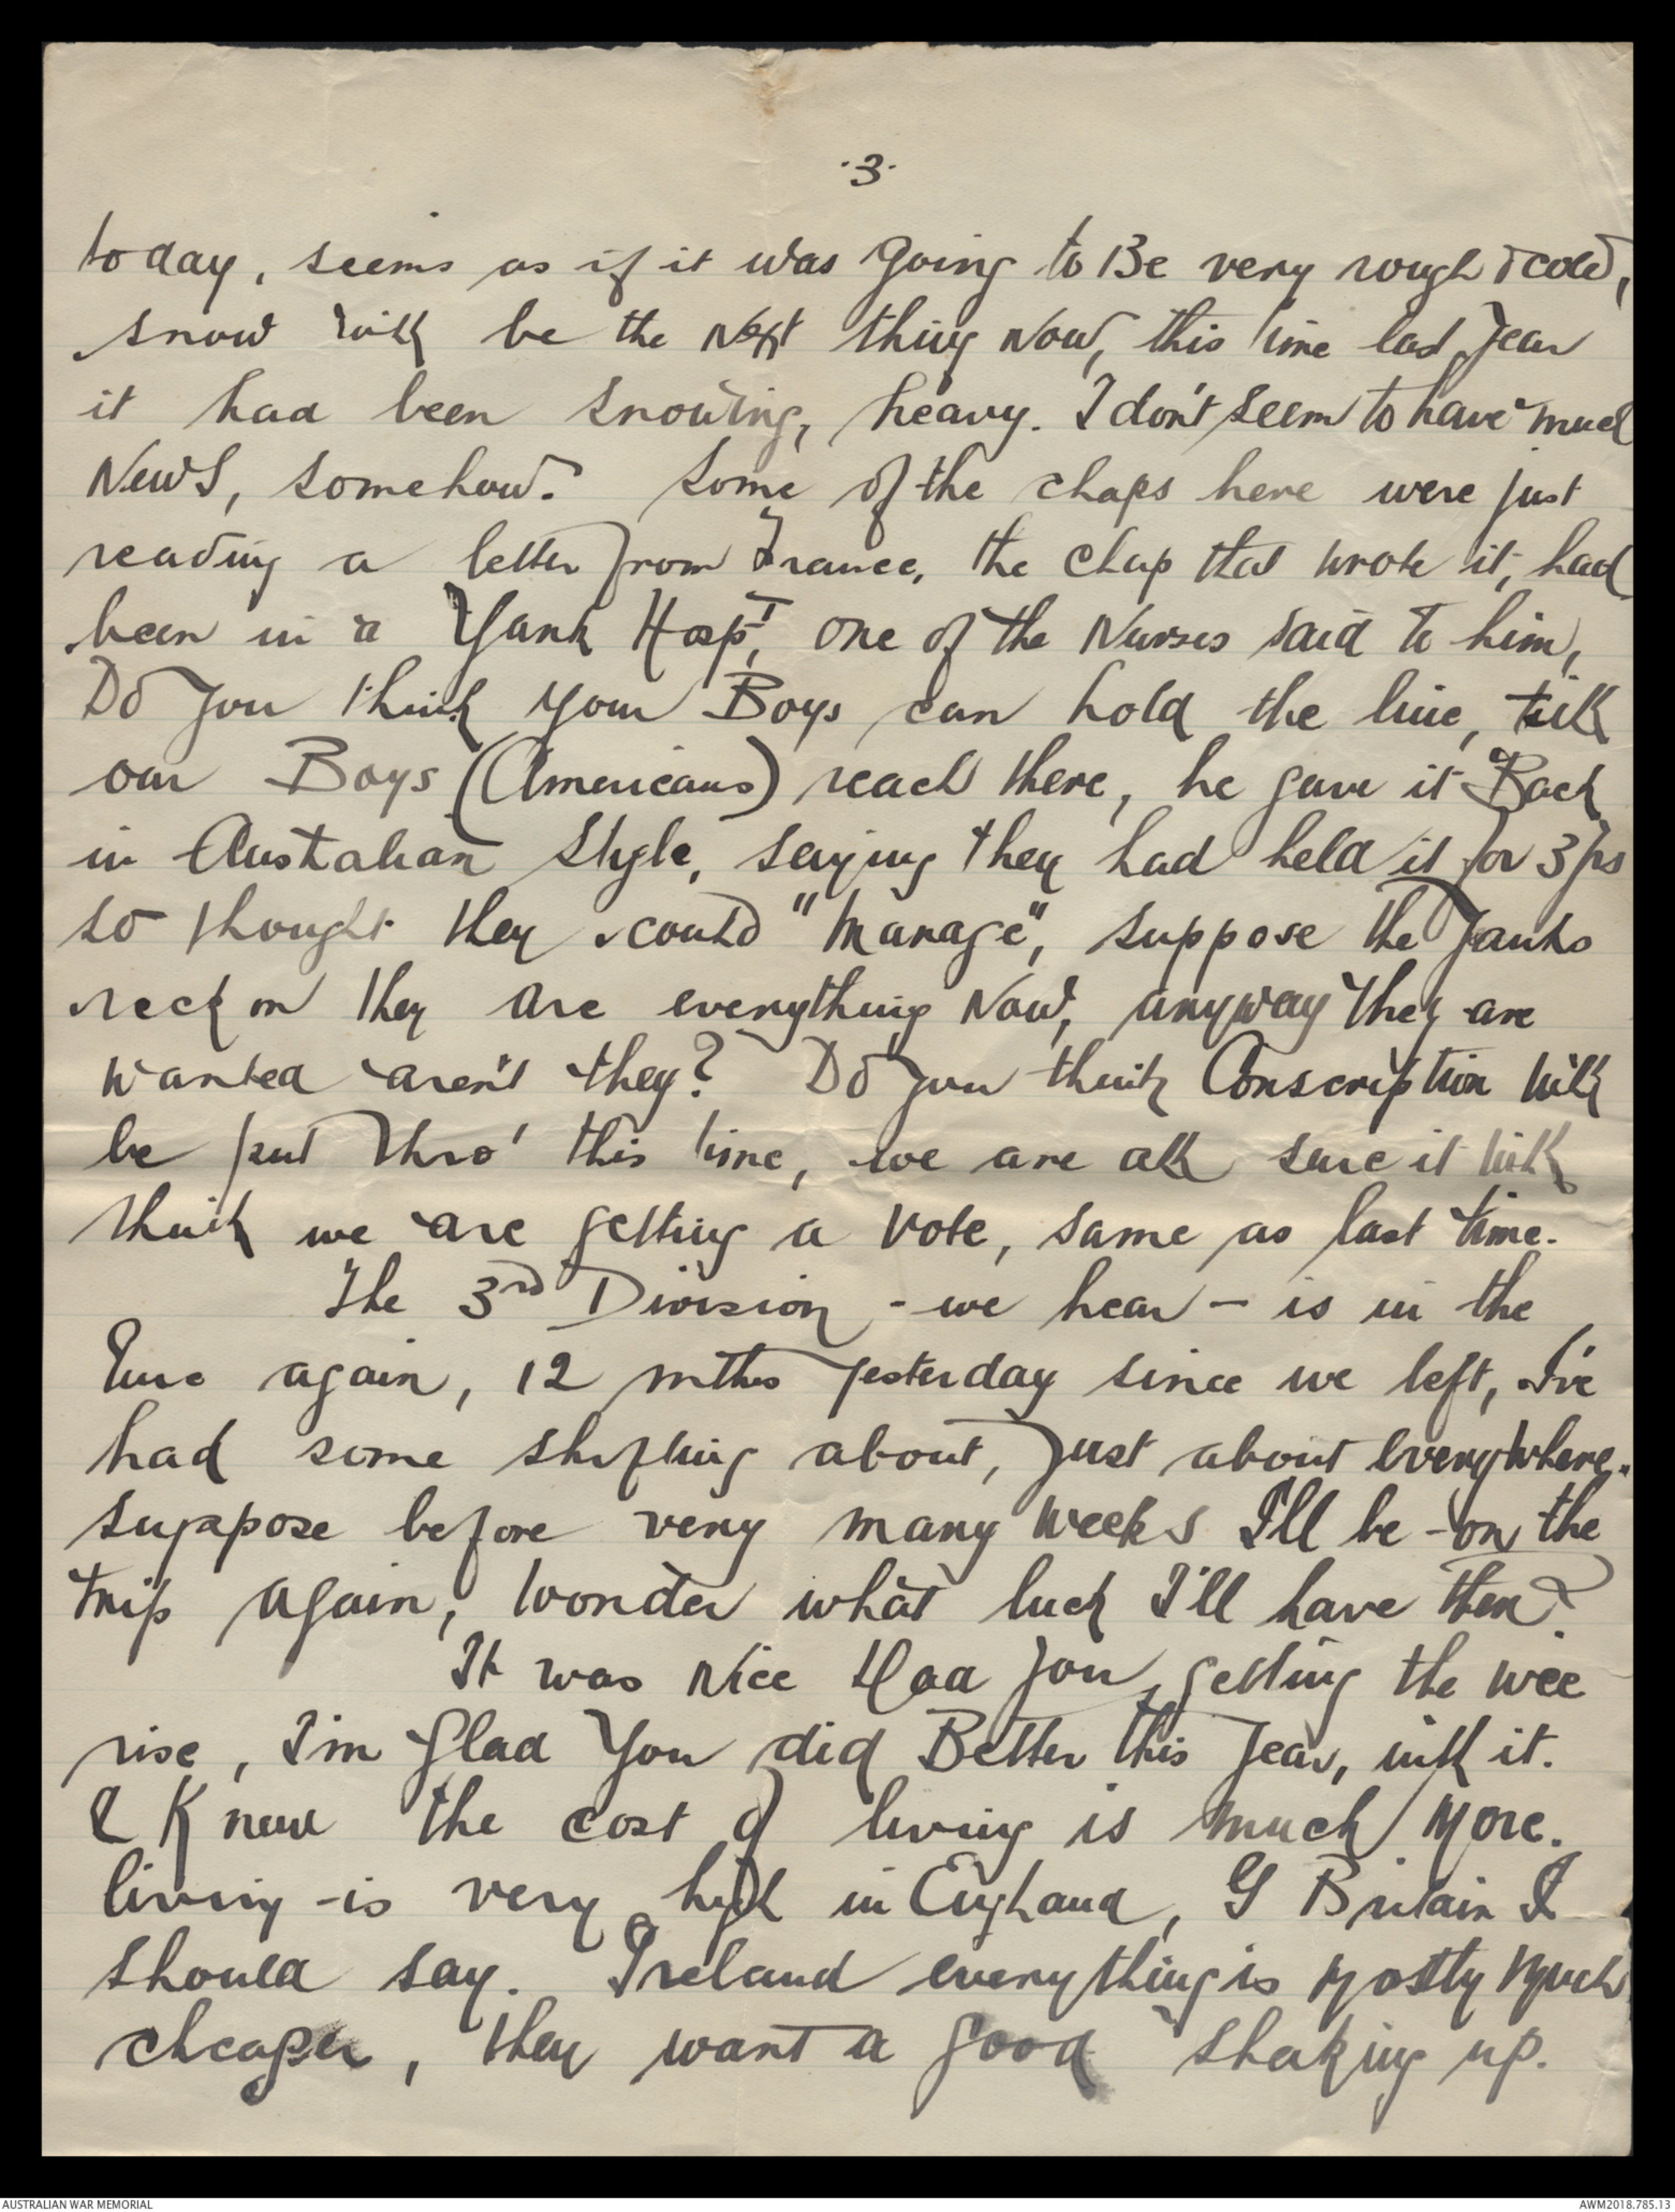 ·3·
today, seems as if it was going to Be very rough & cold,
snow will be the Next thing Now, this time last year
it had been snowing, heavy. I don't seem to have much
News, somehow. Some of the chaps here were just
reading a letter from France, the chap that wrote it, had
been in a Yank Hospt, one of the Nurses said to him,
Do you think your Boys can hold the line, till
our Boys (Americans) reach there, he gave it Back
in Australian style, saying they had held it for 3 yrs
so thought they could "manage", suppose the Yanks
reckon they are everything Now, anyway they are
wanted aren't they? Do you think Conscription will
be put thro' this time, we are all sure it will
think we are getting a vote, same as last time.
The 3rd Division - we hear - is in the
again, 12 mths yesterday since we left, I've
had some shifting about, just about everywhere.
suppose before very many weeks I'll be - on the
trip again, wonder what luck I'll have then?
It was Nice Dad you getting the wee
rise, I'm glad you did Better this year, with it.
I Know the cost of living is much More.
living - is very high in England, G Britain I
should say. Ireland everything is Mostly Much
cheaper, they want a good shaking up.
AUSTRALIAN WAR MEMORIAL
AWM2018.785.13